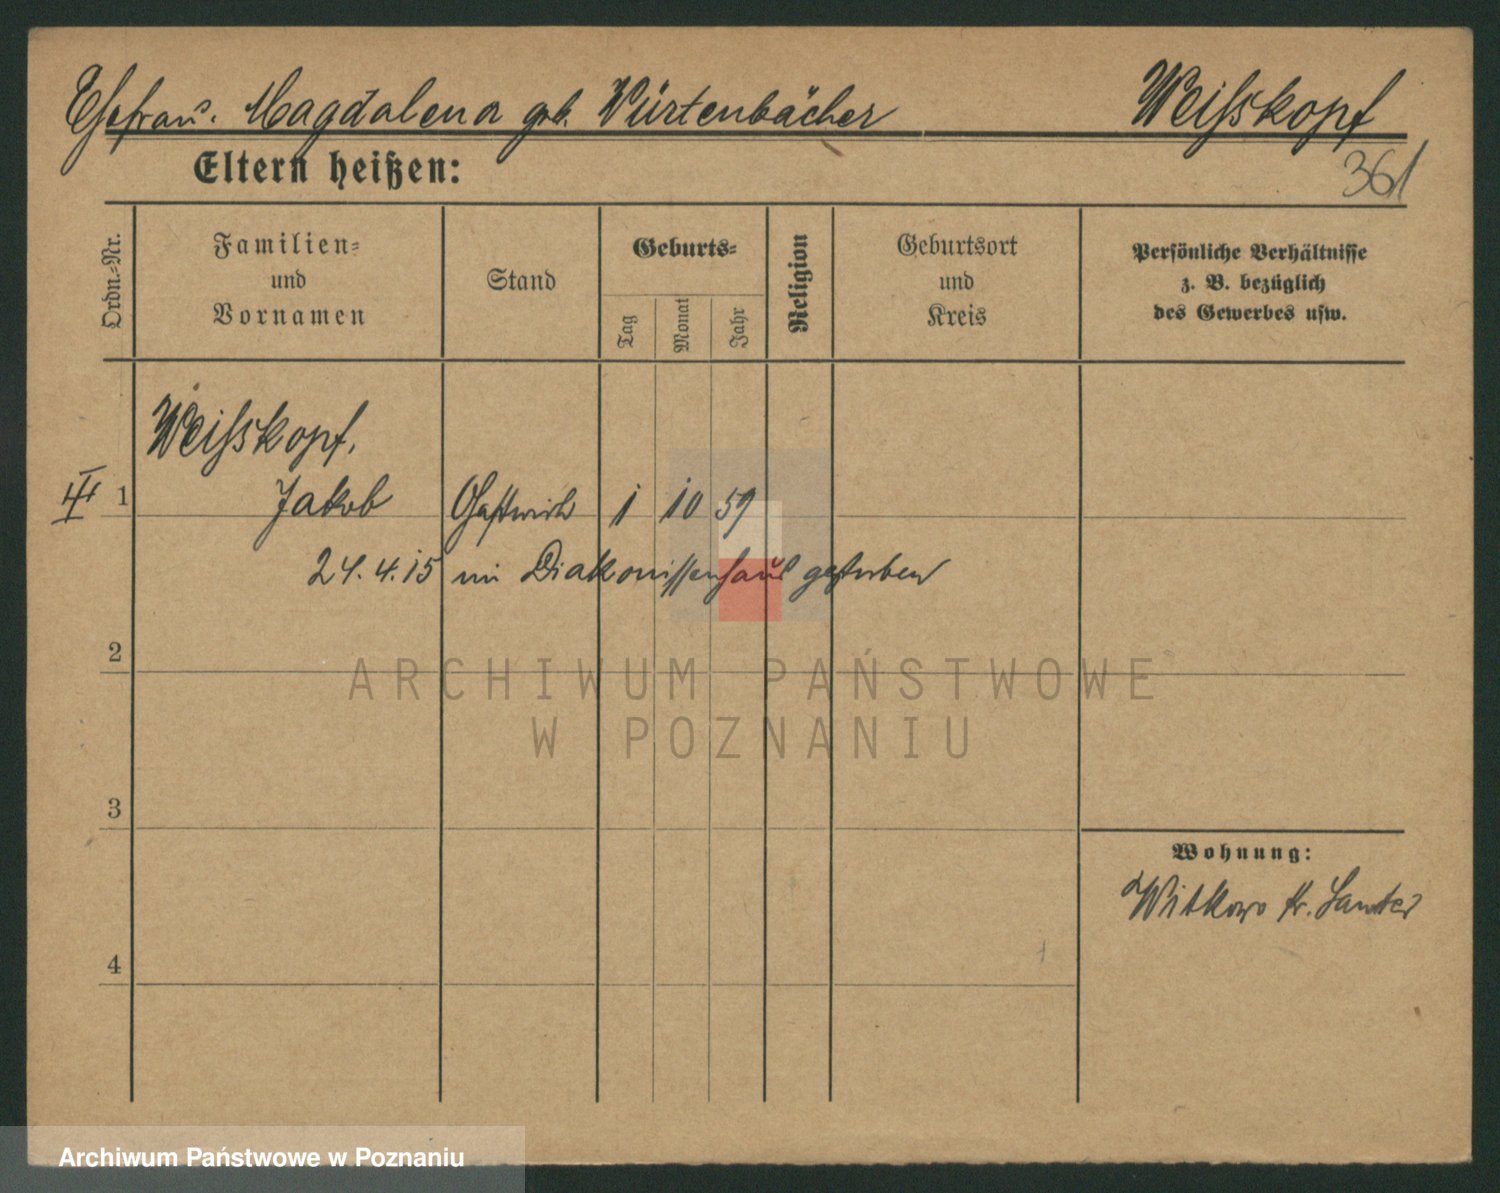 Ehefrau. Magdalena geb. Würtenbächer Weißskopf
361
Eltern heißen:
Ordn.-Nr.
Familien-
und
Vornamen
Stand
Geburts-
Tag
Monat
Jahr
Religion
Geburtsort
und
Kreis
Persönliche Verhältnisse
z. B. bezüglich
des Gewerbes usw.
Weißskopf.
1 Jakob Gastwirth 1 10 59
24.4.15 im Diakonissenhaus gestorben
2
ARCHIWUM PAŃSTWOWE
W POZNANIU
3
Wohnung:
Witkowo Kr. Samter
4
Archiwum Państwowe w Poznaniu